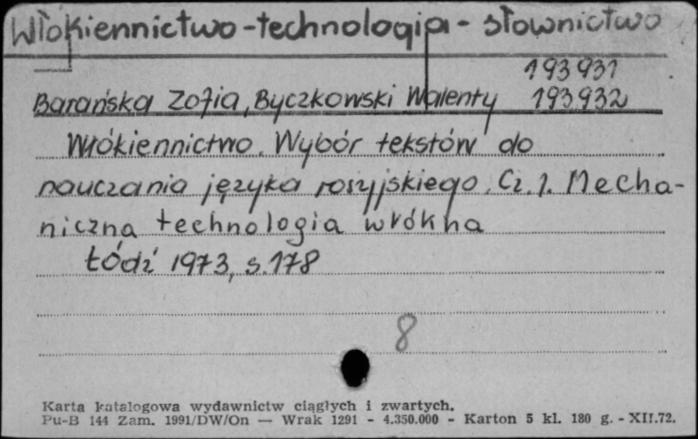 Włókiennictwo - technologia - słownictwo
193931
Barańska Zofia, Byczkowski Walenty 193932
Włókiennictwo. Wybór tekstów do
nauczania języka rosyjskiego. Cz. 1. Mecha-
niczna technologia włókna
Łódź 1973, s. 178
8
Karta katalogowa wydawnictw ciągłych i zwartych.
Pu-B 144 Zam. 1991/DW/On — Wrak 1291 - 4.350.000 - Karton 5 kl. 180 g. - XII.72.